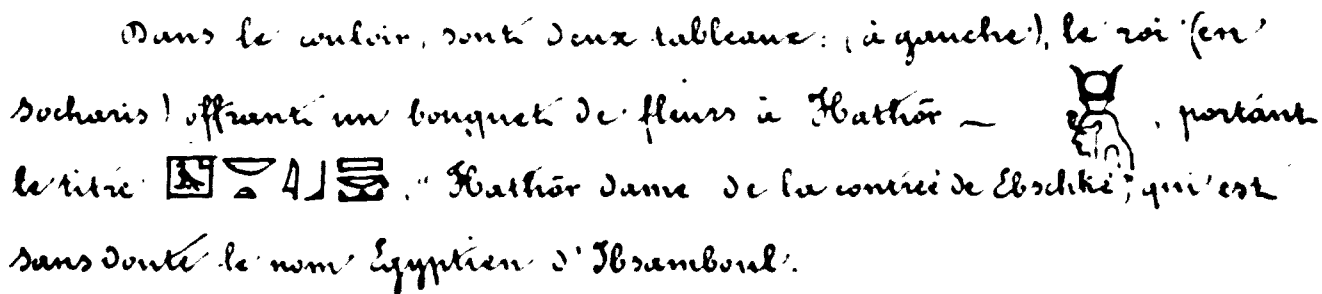 Dans le couloir, sont deux tableaux : (à gauche), le roi (en
socharis) offrant un bouquet de fleurs à Hathôr — , portant
le titre . "Hathôr dame de la contrée de Ebschké", qui est
sans doute le nom Egyptien d'Ibsamboul.